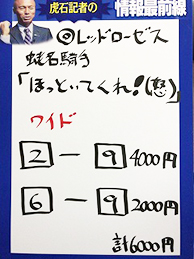 虎石記者の 情報最前線
◎レッドローゼス
蛯名騎手
「ほっといてくれ!(怒)」
ワイド
2 — 9 4000円
6 — 9 2000円
計6000円